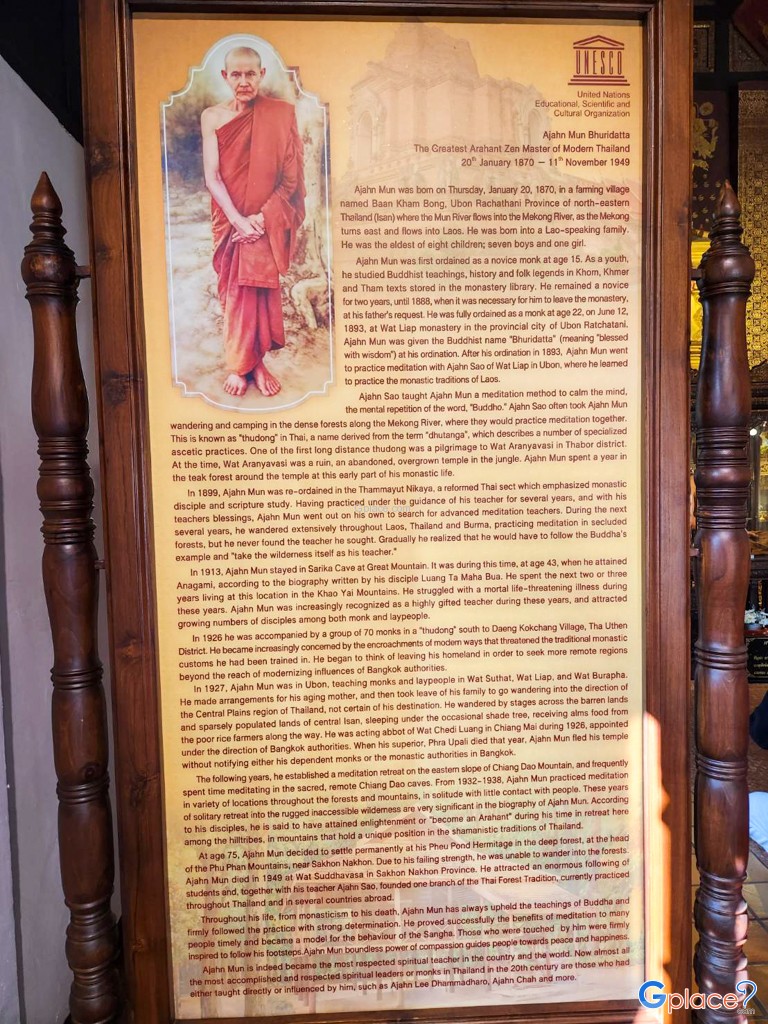 UNESCO
United Nations
Educational, Scientific and
Cultural Organization
Ajahn Mun Bhuridatta
The Greatest Arahant Zen Master of Modern Thailand
20th January 1870 – 11th November 1949
Ajahn Mun was born on Thursday, January 20, 1870, in a farming village
named Baan Kham Bong, Ubon Rachathani Province of north-eastern
Thailand (Isan) where the Mun River flows into the Mekong River, as the Mekong
turns east and flows into Laos. He was born into a Lao-speaking family.
He was the eldest of eight children; seven boys and one girl.
Ajahn Mun was first ordained as a novice monk at age 15. As a youth,
he studied Buddhist teachings, history and folk legends in Khom, Khmer
and Tham texts stored in the monastery library. He remained a novice
for two years, until 1888, when it was necessary for him to leave the monastery,
at his father's request. He was fully ordained as a monk at age 22, on June 12,
1893, at Wat Liap monastery in the provincial city of Ubon Ratchatani.
Ajahn Mun was given the Buddhist name "Bhuridatta" (meaning "blessed
with wisdom") at his ordination. After his ordination in 1893, Ajahn Mun went
to practice meditation with Ajahn Sao of Wat Liap in Ubon, where he learned
to practice the monastic traditions of Laos.
Ajahn Sao taught Ajahn Mun a meditation method to calm the mind,
the mental repetition of the word, "Buddho." Ajahn Sao often took Ajahn Mun
wandering and camping in the dense forests along the Mekong River, where they would practice meditation together.
This is known as "thudong" in Thai, a name derived from the term "dhutanga", which describes a number of specialized
ascetic practices. One of the first long distance thudong was a pilgrimage to Wat Aranyavasi in Thabor district.
At the time, Wat Aranyavasi was a ruin, an abandoned, overgrown temple in the jungle. Ajahn Mun spent a year in
the teak forest around the temple at this early part of his monastic life.
In 1899, Ajahn Mun was re-ordained in the Thammayut Nikaya, a reformed Thai sect which emphasized monastic
disciple and scripture study. Having practiced under the guidance of his teacher for several years, and with his
teachers blessings, Ajahn Mun went out on his own to search for advanced meditation teachers. During the next
several years, he wandered extensively throughout Laos, Thailand and Burma, practicing meditation in secluded
forests, but he never found the teacher he sought. Gradually he realized that he would have to follow the Buddha's
example and "take the wilderness itself as his teacher."
In 1913, Ajahn Mun stayed in Sarika Cave at Great Mountain. It was during this time, at age 43, when he attained
Anagami, according to the biography written by his disciple Luang Ta Maha Bua. He spent the next two or three
years living at this location in the Khao Yai Mountains. He struggled with a mortal life-threatening illness during
these years. Ajahn Mun was increasingly recognized as a highly gifted teacher during these years, and attracted
growing numbers of disciples both monk and laypeople.
In 1926 he was accompanied by a group of 70 monks in a "thudong" south to Daeng Kokchang Village, Tha Uthen
District. He became increasingly concerned by the encroachments of modern ways that threatened the traditional monastic
customs he had been trained in. He began to think of leaving his homeland in order to seek more remote regions
beyond the reach of modernizing influences of Bangkok authorities.
In 1927, Ajahn Mun was in Ubon, teaching monks and laypeople in Wat Suthat, Wat Liap, and Wat Burapha.
He made arrangements for his aging mother, and then took leave of his family to go wandering into the direction of
the Central Plains region of Thailand, not certain of his destination. He wandered by stages across the barren lands
and sparsely populated lands of central Isan, sleeping under the occasional shade tree, receiving alms food from
the poor rice farmers along the way. He was acting abbot of Wat Chedi Luang in Chiang Mai during 1926, appointed
under the direction of Bangkok authorities. When his superior, Phra Upali died that year, Ajahn Mun fled his temple
without notifying either his dependent monks or the monastic authorities in Bangkok.
The following years, he established a meditation retreat on the eastern slope of Chiang Dao Mountain, and frequently
spent time meditating in the sacred, remote Chiang Dao caves. From 1932-1938, Ajahn Mun practiced meditation
in variety of locations throughout the forests and mountains, in solitude with little contact with people. These years
of solitary retreat into the rugged inaccessible wilderness are very significant in the biography of Ajahn Mun. According
to his disciples, he is said to have attained enlightenment or "become an Arahant" during his time in retreat here
among the hilltribes, in mountains that hold a unique position in the shamanistic traditions of Thailand.
At age 75, Ajahn Mun decided to settle permanently at his Pheu Pond Hermitage in the deep forest, at the head
of the Phu Phan Mountains, near Sakhon Nakhon. Due to his failing strength, he was unable to wander into the forests.
Ajahn Mun died in 1949 at Wat Suddhavasa in Sakhon Nakhon Province. He attracted an enormous following of
students and, together with his teacher Ajahn Sao, founded one branch of the Thai Forest Tradition, currently practiced
throughout Thailand and in several countries abroad.
Throughout his life, from monasticism to his death, Ajahn Mun has always upheld the teachings of Buddha and
firmly followed the practice with strong determination. He proved successfully the benefits of meditation to many
people timely and became a model for the behaviour of the Sangha. Those who were touched by him were firmly
inspired to follow his footsteps.Ajahn Mun boundless power of compassion guides people towards peace and happiness.
Ajahn Mun is indeed became the most respected spiritual teacher in the country and the world. Now almost all
the most accomplished and respected spiritual leaders or monks in Thailand in the 20th century are those who had
either taught directly or influenced by him, such as Ajahn Lee Dhammadharo, Ajahn Chah and more.
Gplace?
.com